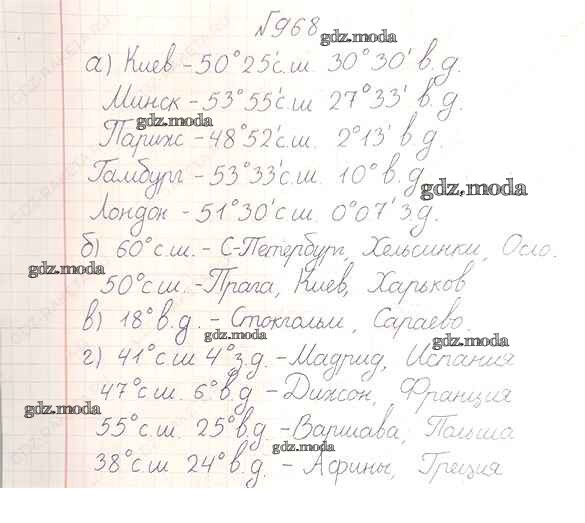 №968
gdz.moda
а) Киев - 50°25' с.ш. 30°30' в.д.
Минск - 53°55' с.ш 27°33' в.д.
gdz.moda
Париж - 48°52' с.ш. 2°13' в.д.
Гамбург - 53°33' с.ш. 10° в.д.
gdz.moda
Лондон - 51°30' с.ш 0°07' з.д.
б) 60° с.ш. - С-Петербург, Хельсинки, Осло.
gdz.moda
50° с.ш. - Прага, Киев, Харьков
в) 18° в.д. - Стокгольм, Сараево.
gdz.moda
gdz.moda
г) 41° с.ш 4° з.д. - Мадрид, Испания
47° с.ш. 6° в.д - Дижон, Франция
gdz.moda
55° с.ш. 25° в.д. - Варшава, Польша
gdz.moda
38° с.ш 24° в.д. - Афины, Греция